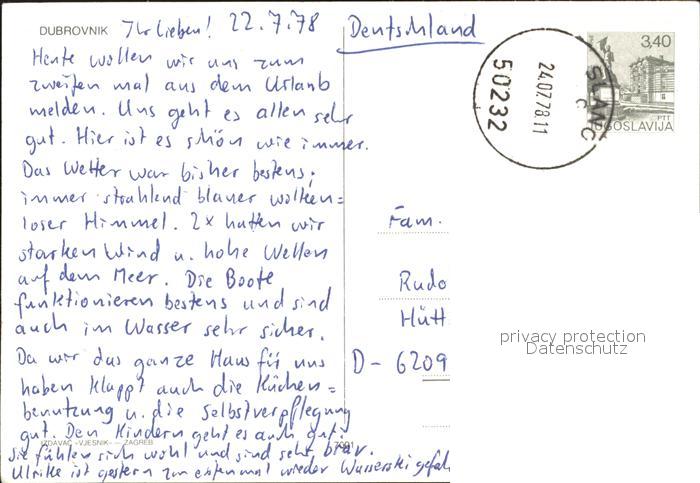 DUBROVNIK Ihr Lieben! 22.7.78
Heute wollen wir uns zum
zweiten mal aus dem Urlaub
melden. Uns geht es allen sehr
gut. Hier ist es schön wie immer.
Das Wetter war bisher bestens;
immer strahlend blauer wolken=
loser Himmel. 2x hatten wir
starken Wind u. hohe Wellen
auf dem Meer. Die Boote
funktionieren bestens und sind
auch im Wasser sehr sicher.
Da wir das ganze Haus für uns
haben klappt auch die Küchen=
benutzung u. die Selbstverpflegung
gut. Den Kindern geht es auch gut:
IZDAVAČ »VJESNIK« — ZAGREB
sie fühlen sich wohl und sind sehr brav.
Ulrike ist gestern zum erstenmal wieder Wasserski gefah
Deutschland
50232
24.07.78.11
SLANO
C
3,40
PTT
JUGOSLAVIJA
Fam.
Rudo
Hütt
D - 6209
privacy protection
Datenschutz